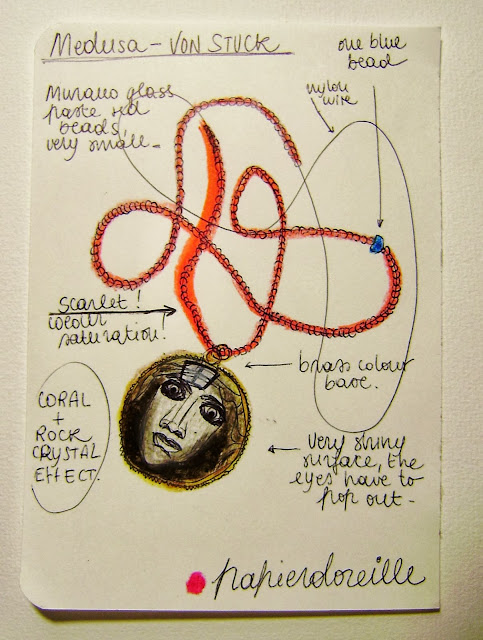 Medusa - VON STUCK
one blue
bead
nylon
wire
Murano glass
paste red
beads,
very small -
scarlet!
colour
saturation!
brass colour
base.
CORAL
+
ROCK
CRYSTAL
EFFECT.
Very shiny
surface, the
eyes have to
pop out -
papierdoreille